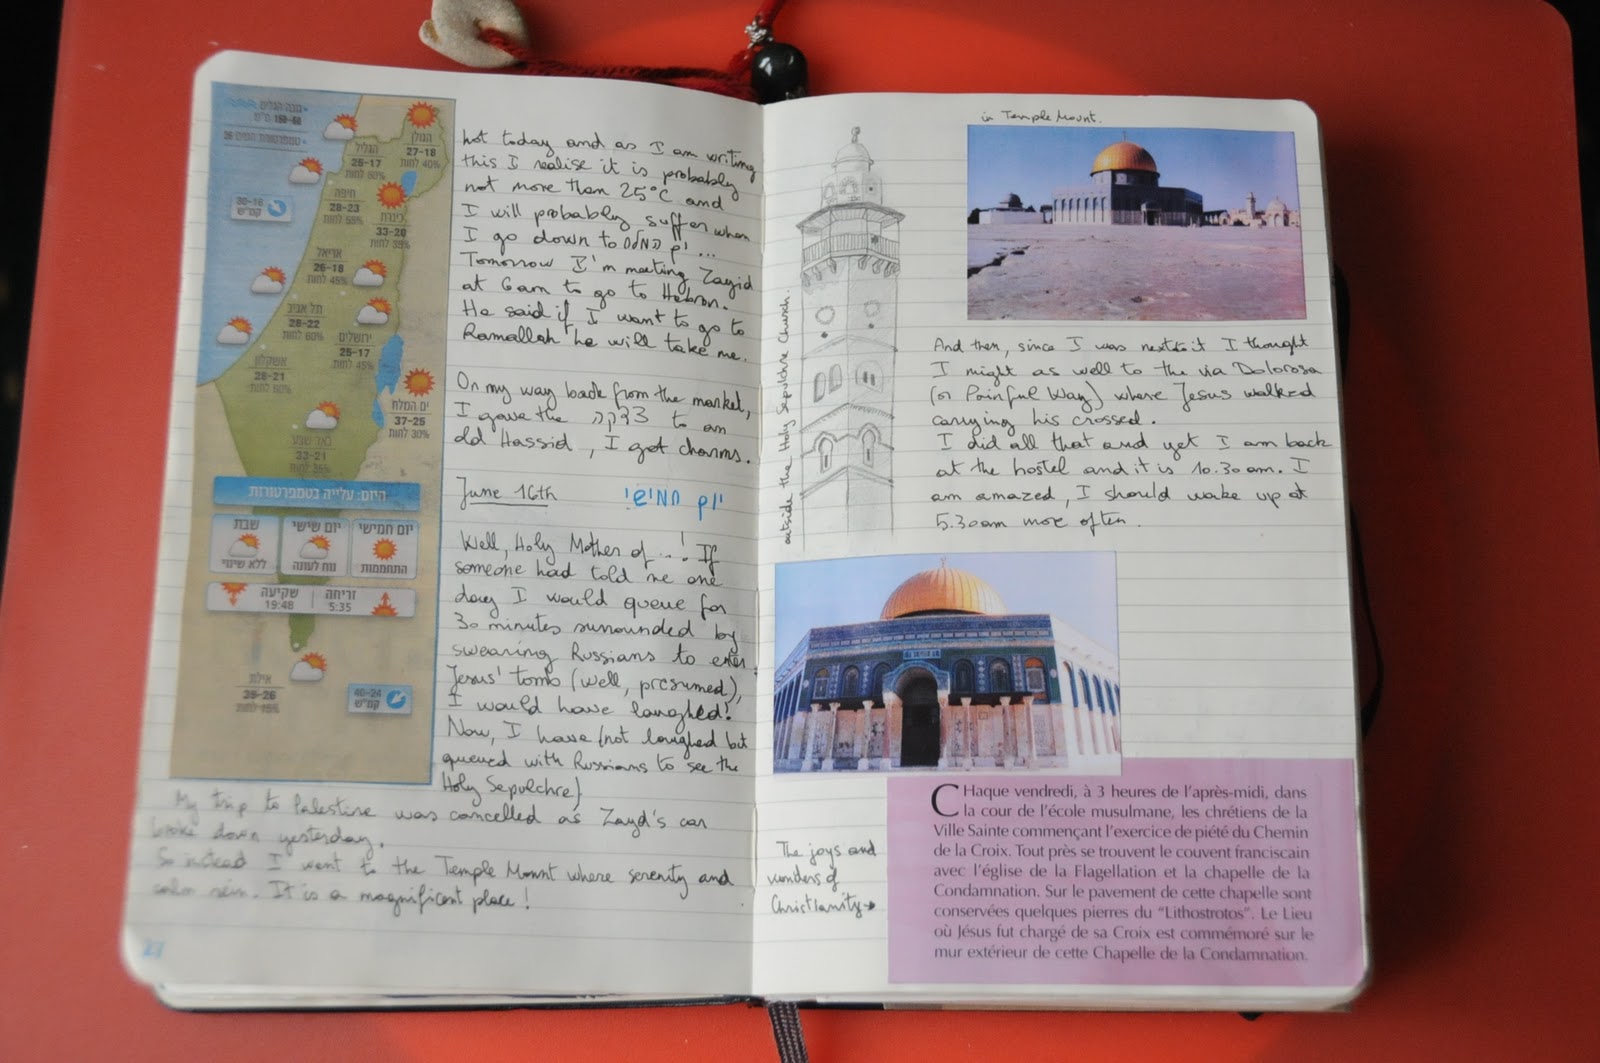 גובה הגלים
150-60 ס"מ
טמפרטורת המים 26
הגולן
27-18
לחות 40%
הגליל
25-17
לחות 60%
חיפה
28-23
לחות 55%
כינרת
33-20
לחות 35%
30-16
קמ"ש
אריאל
26-18
לחות 45%
תל אביב
26-22
לחות 60%
ירושלים
25-17
לחות 45%
אשקלון
26-21
לחות 60%
ים המלח
37-25
לחות 30%
באר שבע
33-21
לחות 35%
היום: עלייה בטמפרטורות
יום חמישי
התחממות
יום שישי
נוח לעונה
שבת
ללא שינוי
זריחה
5:35
שקיעה
19:48
אילת
39-26
לחות 15%
40-24
קמ"ש
hot today and as I am writing
this I realise it is probably
not more than 25°C and
I will probably suffer when
I go down to ים המלח ...
Tomorrow I'm meeting Zayid
at 6am to go to Hebron.
He said if I want to go to
Ramallah he will take me.
On my way back from the market,
I gave the צדקה to an
old Hassid, I got charms.
June 16th יום חמישי
Well, Holy Mother of ...! If
someone had told me one
day I would queue for
30 minutes surrounded by
swearing Russians to enter
Jesus' tomb (well, presumed),
I would have laughed!
Now, I have (not laughed but
queued with Russians to see the
Holy Sepulchre)
My trip to Palestine was cancelled as Zayd's car
broke down yesterday.
So instead I went to the Temple Mount where serenity and
calm reign. It is a magnificent place!
outside the Holy Sepulchre Church.
in Temple Mount.
And then, since I was next to it I thought
I might as well to the via Dolorosa
(or Painful Way) where Jesus walked
carrying his crossed.
I did all that and yet I am back
at the hostel and it is 10.30am. I
am amazed, I should wake up at
5.30am more often.
The joys and
wonders of
Christianity→
CHaque vendredi, à 3 heures de l'après-midi, dans
la cour de l'école musulmane, les chrétiens de la
Ville Sainte commençant l'exercice de piété du Chemin
de la Croix. Tout près se trouvent le couvent franciscain
avec l'église de la Flagellation et la chapelle de la
Condamnation. Sur le pavement de cette chapelle sont
conservées quelques pierres du “Lithostrotos”. Le Lieu
où Jésus fut chargé de sa Croix est commémoré sur le
mur extérieur de cette Chapelle de la Condamnation.